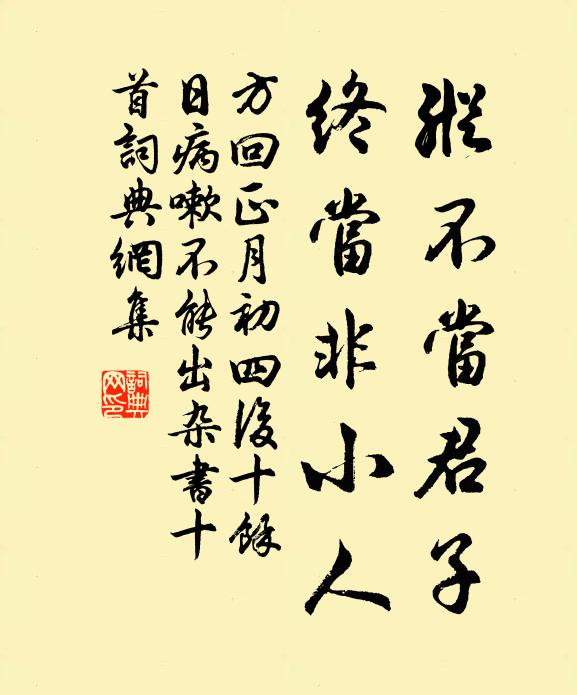 縱不當君子
終當非小人
方回正月初四後十餘
日病嗽不能出杂書十
首詞典網集
詞典
网印